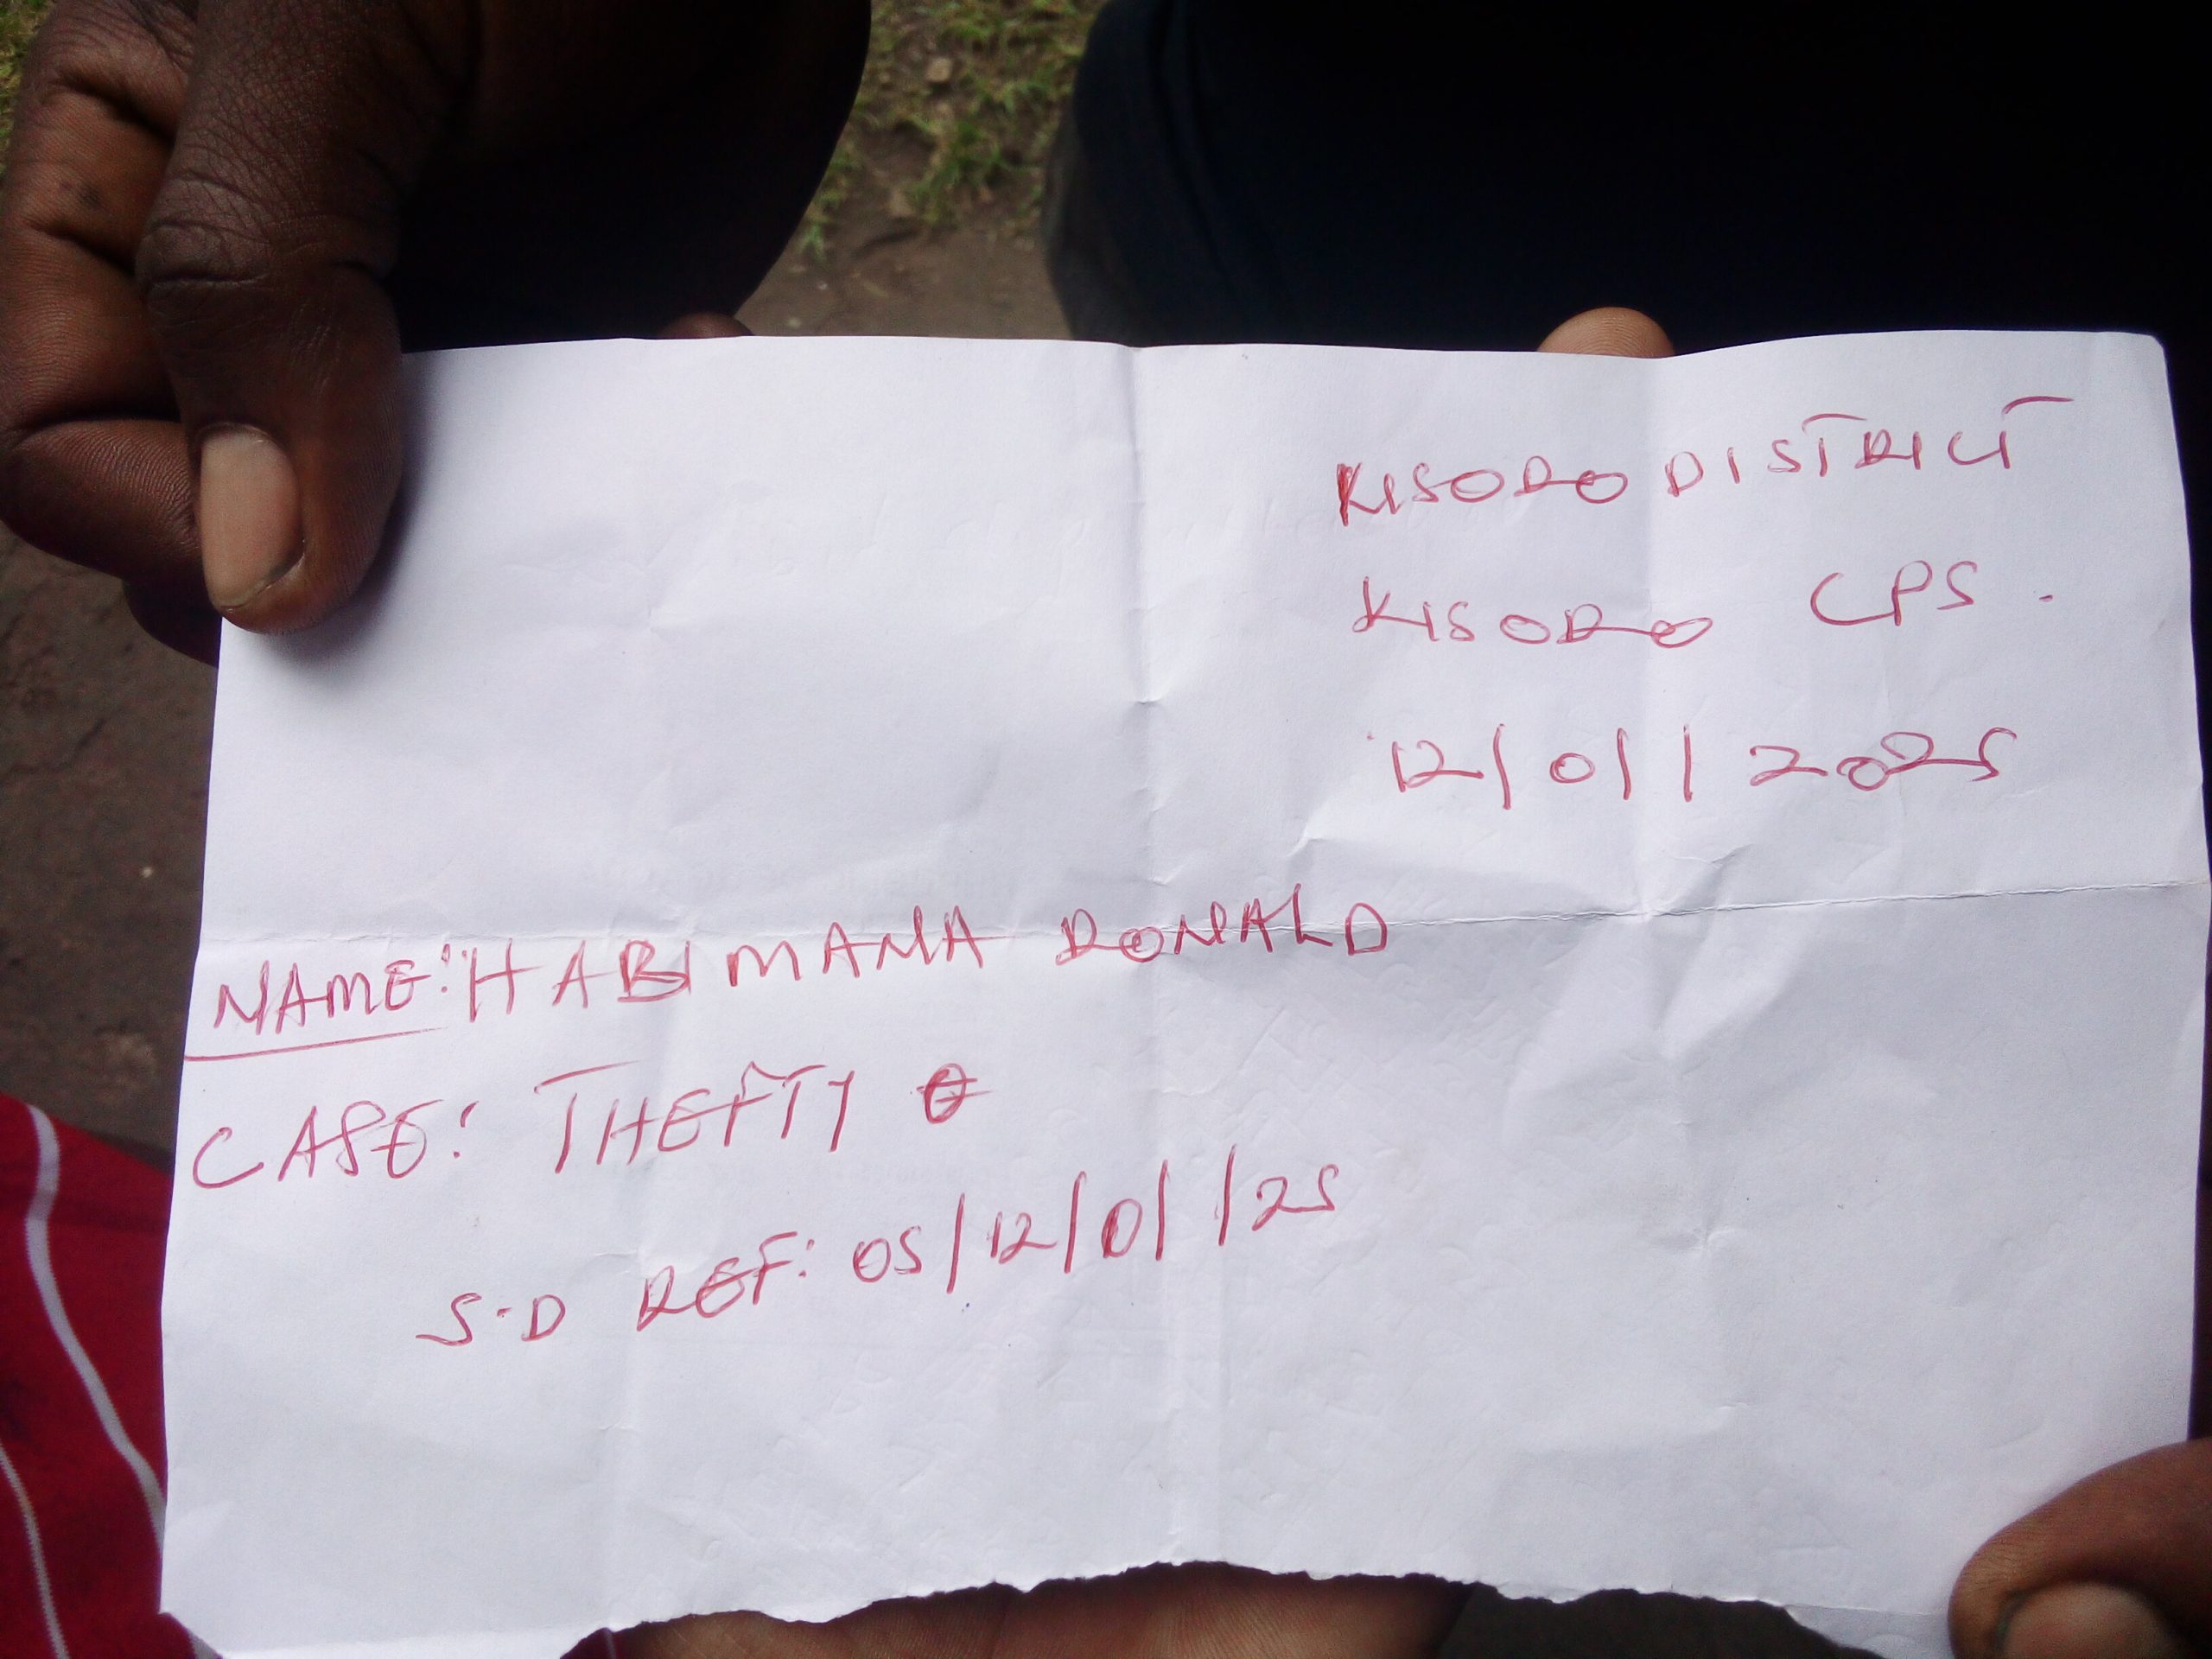 KISORO DISTRICT
KISORO CPS.
12/01/2025
NAME: HABIMANA RONALD
CASE: THEFT
S.D REF: 05/12/01/25